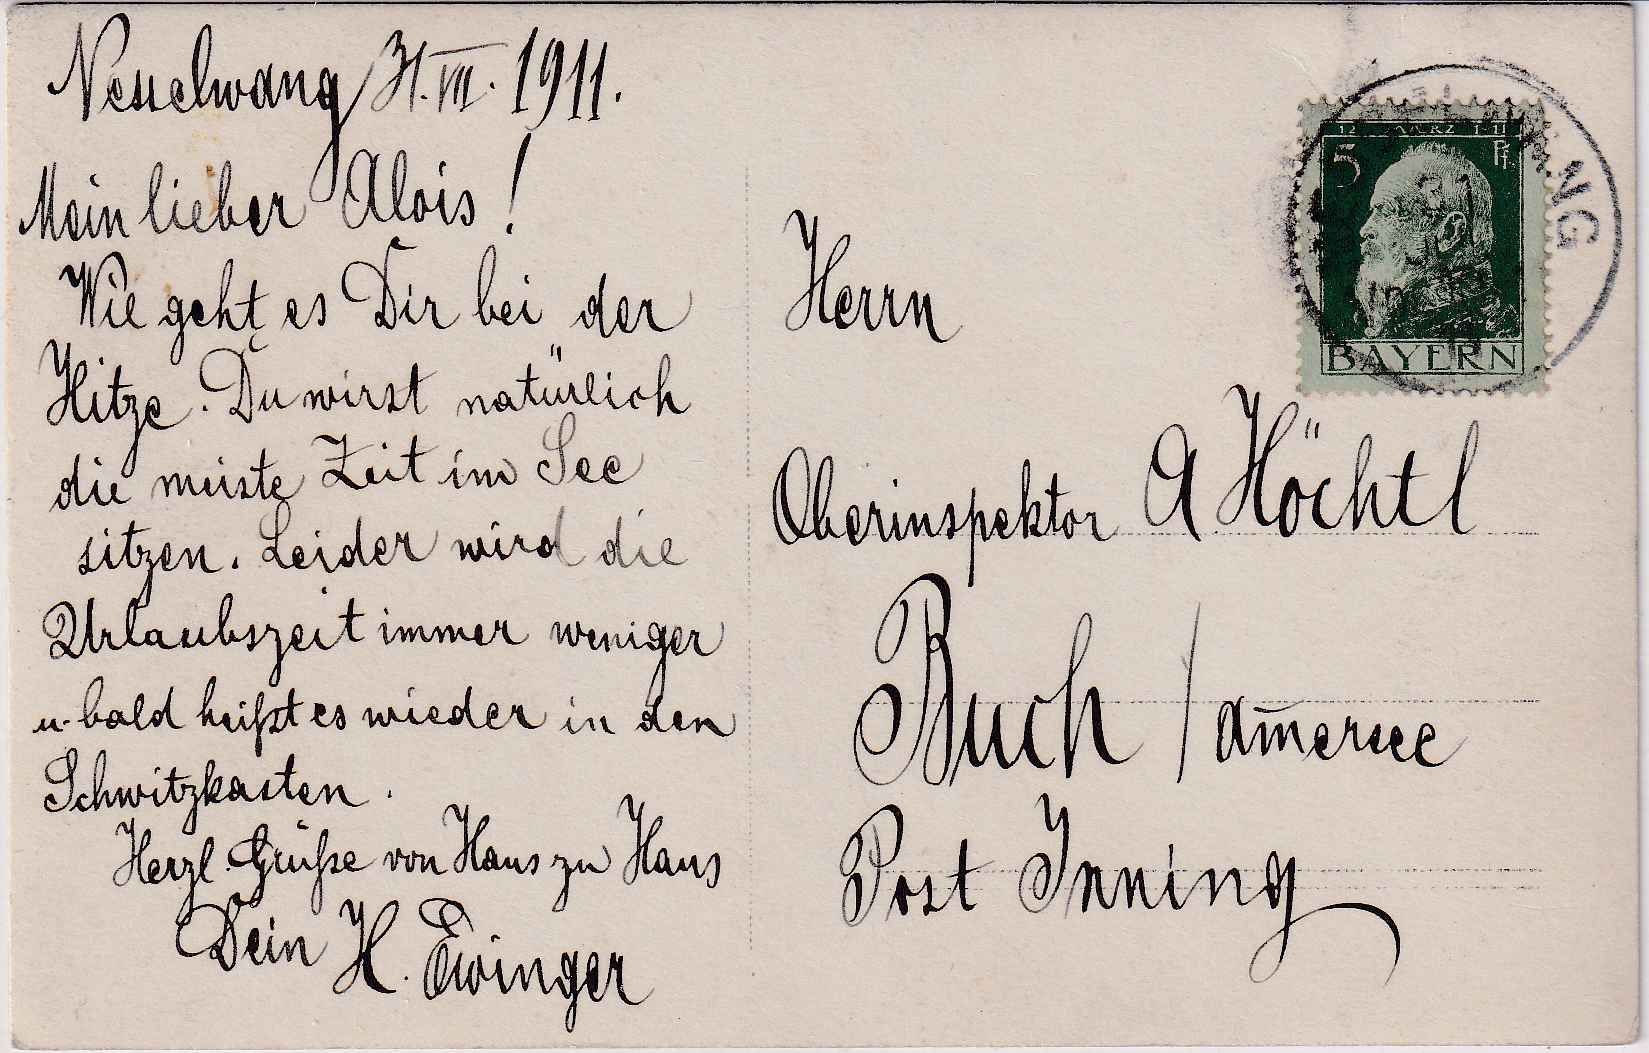 Nesselwang 31.VII.1911.
Mein lieber Alois!
Wie geht es Dir bei der
Hitze. Du wirst natürlich
die meiste Zeit im See
sitzen. Leider wird die
Urlaubszeit immer weniger
u. bald heißt es wieder in den
Schwitzkasten.
Herzl. Grüße von Haus zu Haus
Dein H. Ewinger
Herrn
Oberinspektor A Höchtl
Buch / am̅ersee
Post Inning
12. MÄRZ 1911
5 Pf.
BAYERN